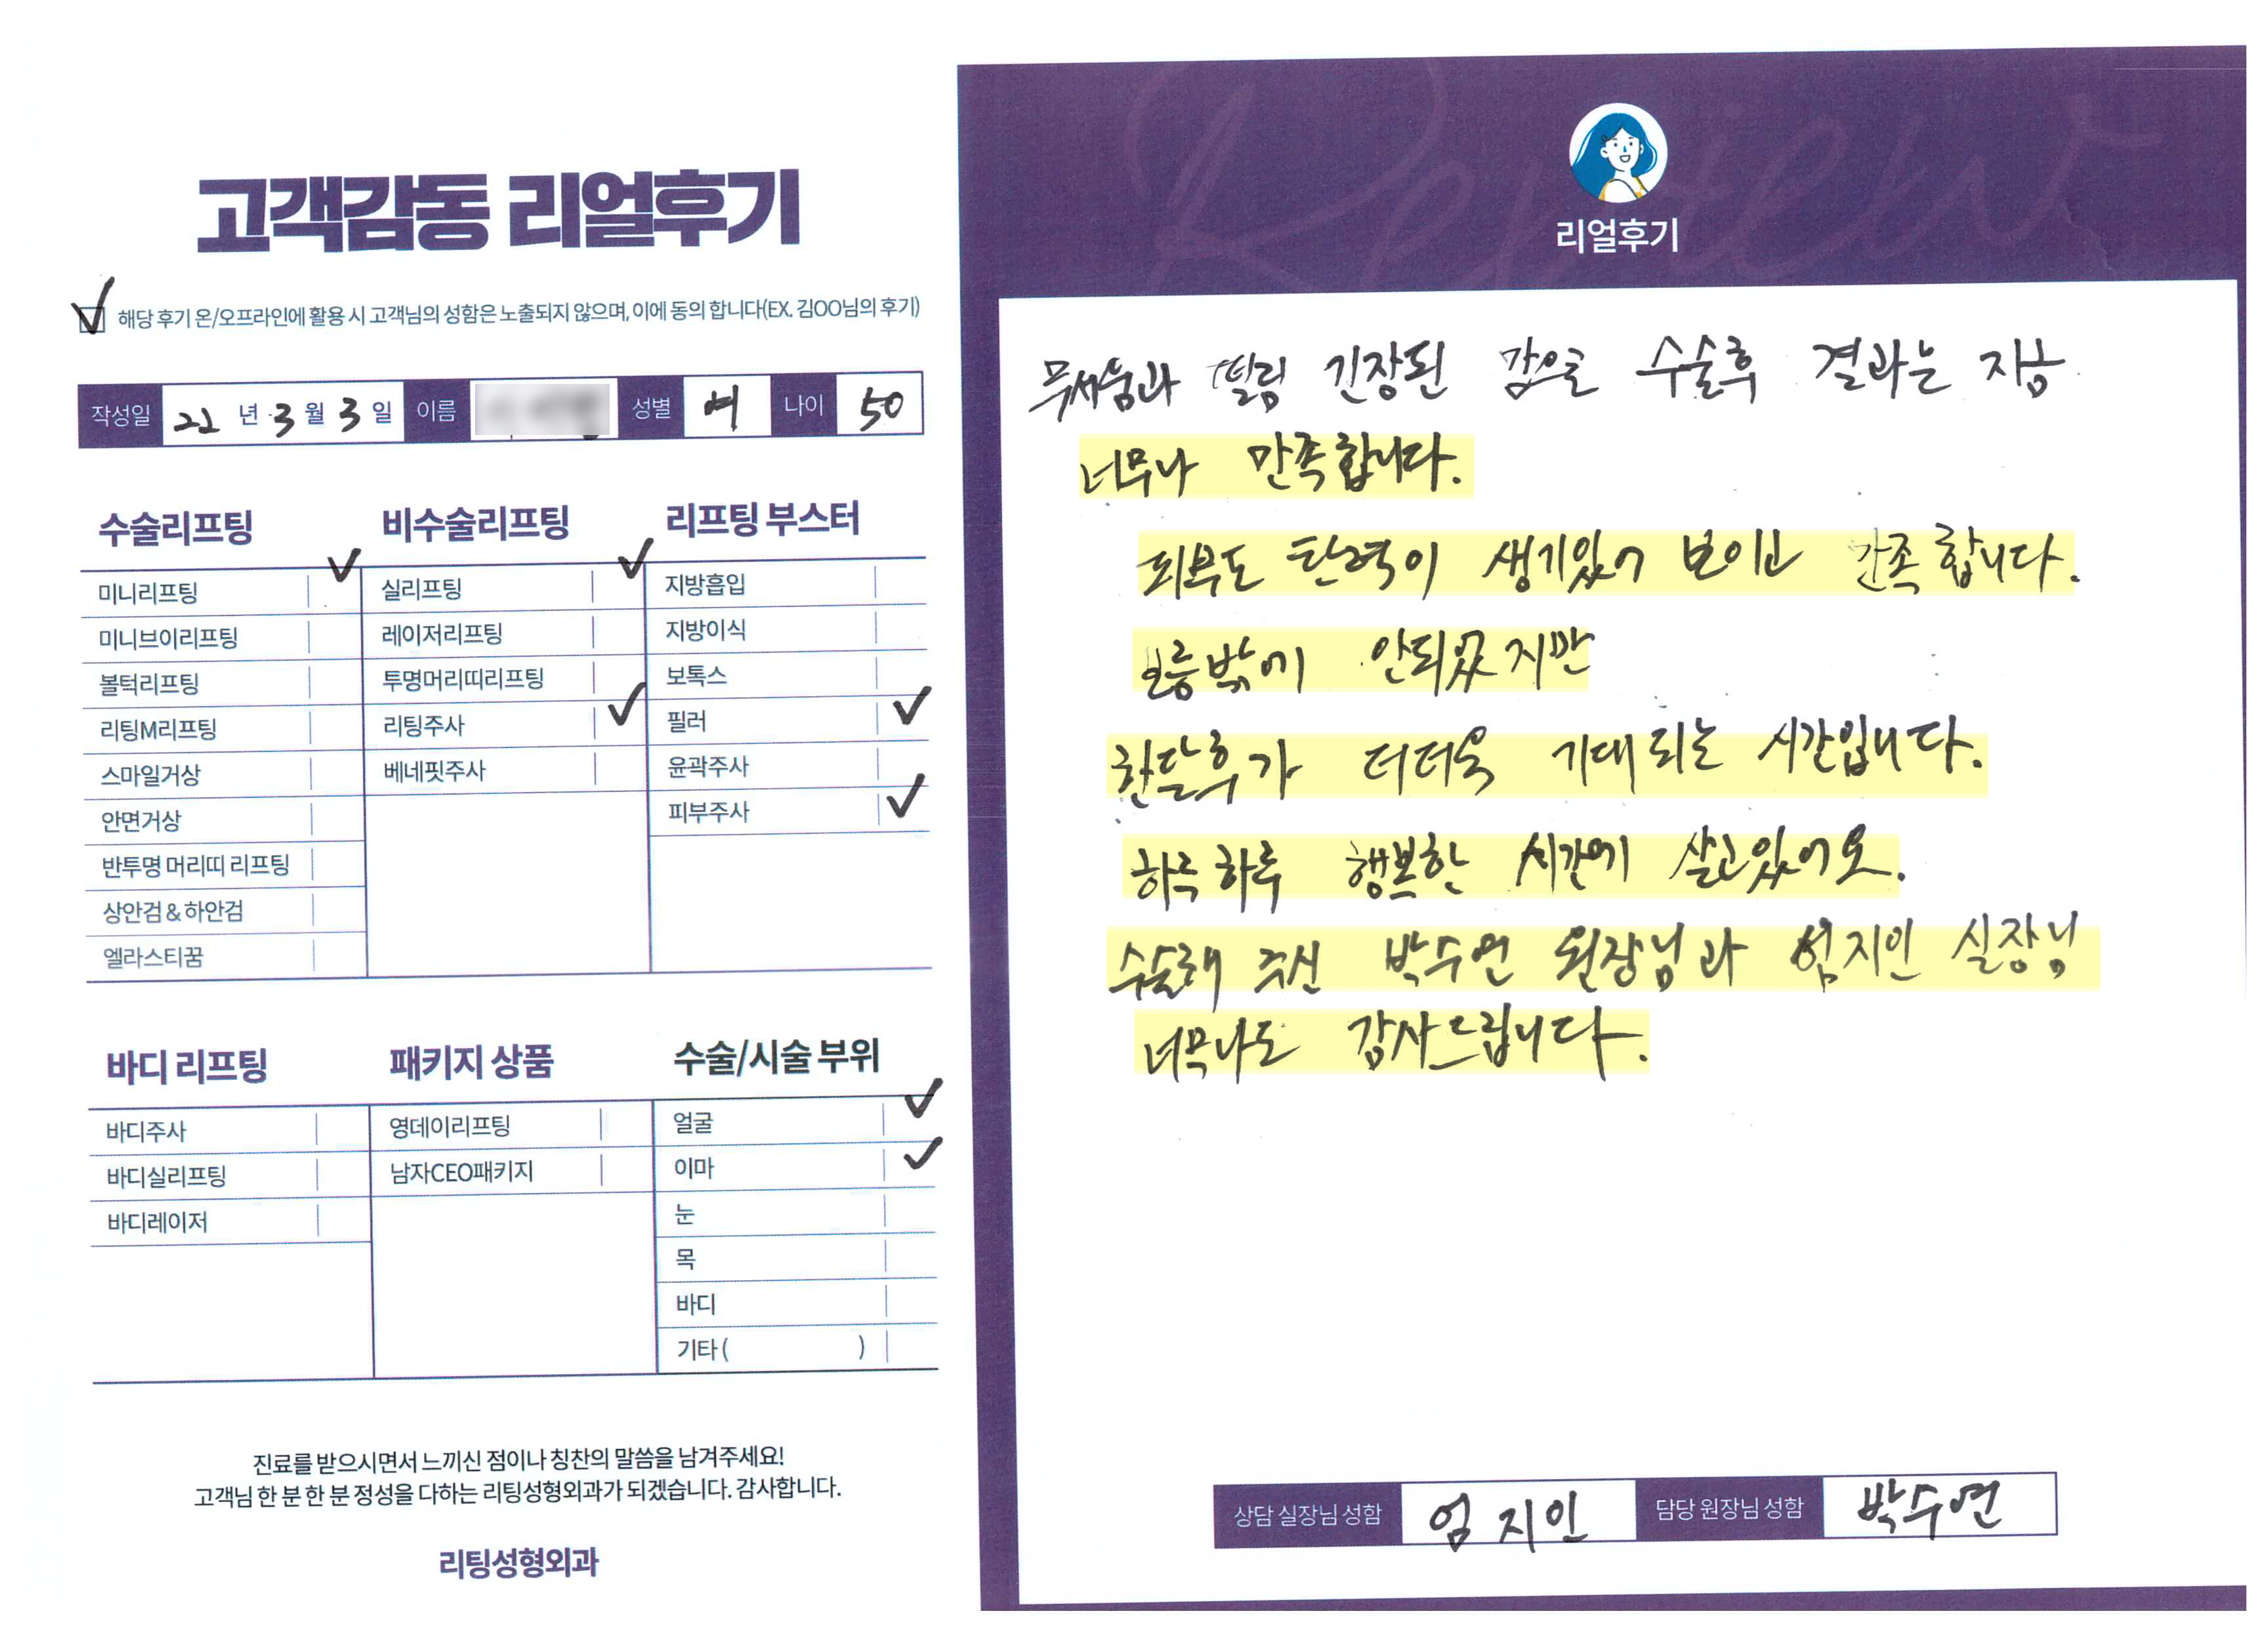 고객감동 리얼후기
✓ 해당 후기 온/오프라인에 활용 시 고객님의 성함은 노출되지 않으며, 이에 동의 합니다(EX. 김OO님의 후기)
작성일 22 년 3 월 3 일 이름 성별 여 나이 50
수술리프팅
미니리프팅 ✓
미니브이리프팅
볼턱리프팅
리팅M리프팅
스마일거상
안면거상
반투명 머리띠 리프팅
상안검 & 하안검
엘라스티꿈
비수술리프팅
실리프팅 ✓
레이저리프팅
투명머리띠리프팅
리팅주사 ✓
베네핏주사
리프팅 부스터
지방흡입
지방이식
보톡스
필러 ✓
윤곽주사
피부주사 ✓
바디 리프팅
바디주사
바디실리프팅
바디레이저
패키지 상품
영데이리프팅
남자CEO패키지
수술/시술 부위
얼굴 ✓
이마 ✓
눈
목
바디
기타 ( )
진료를 받으시면서 느끼신 점이나 칭찬의 말씀을 남겨주세요!
고객님 한 분 한 분 정성을 다하는 리팅성형외과가 되겠습니다. 감사합니다.
리팅성형외과
Review
리얼후기
무서움과 떨림 긴장된 감으로 수술후 결과는 지금
너무나 만족합니다.
피부도 탄력이 생기있어 보이고 만족합니다.
보름밖에 안되었지만
한달후가 더더욱 기대되는 시간입니다.
하루하루 행복한 시간에 살고있어요.
수술해 주신 박수연 원장님과 엄지인 실장님
너무나도 감사드립니다.
상담 실장님 성함 엄지인 담당 원장님 성함 박수연